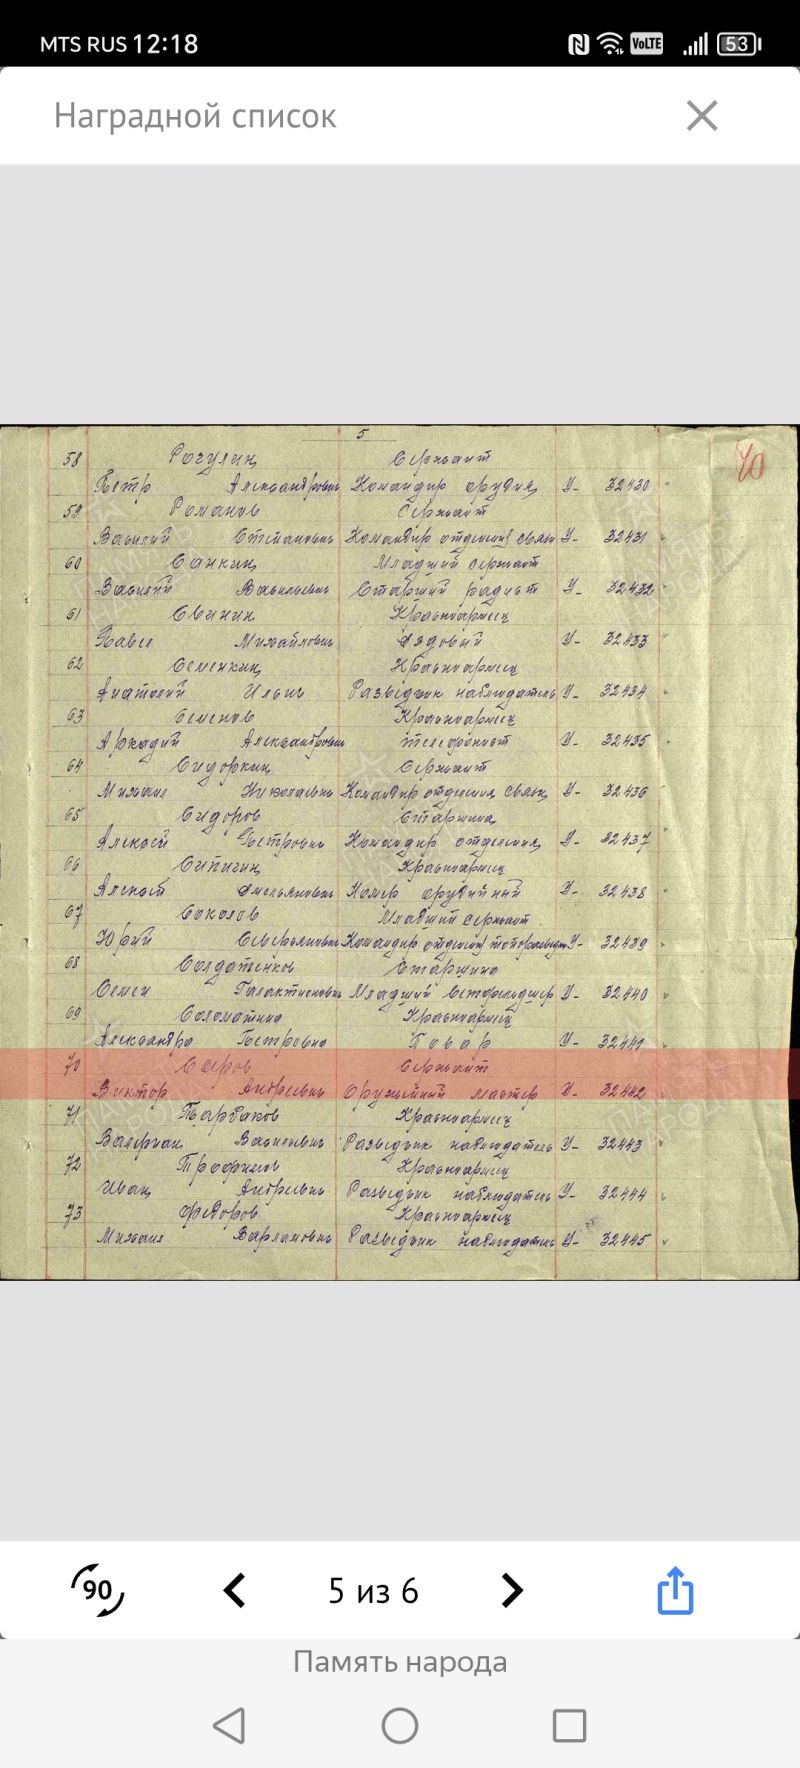 MTS RUS 12:18
VoLTE 53
Наградной список
5
40
58 Рогулин Сержант
Петр Александрович Командир орудия У- 32430
59 Романов Сержант
Василий Степанович Командир отделения связи У- 32431
60 Санкин Младший сержант
Василий Васильевич Старший радист У- 32432
61 Свинин Красноармеец
Павел Михайлович Рядовой У- 32433
62 Семенкин Красноармеец
Анатолий Ильич Разведчик наблюдатель У- 32434
63 Семенов Красноармеец
Аркадий Александрович телефонист У- 32435
64 Сидоркин Сержант
Михаил Николаевич Командир отделения связи У- 32436
65 Сидоров Старшина
Алексей Петрович Командир отделения У- 32437
66 Сипигин Красноармеец
Алексей Емельянович Номер орудийный У- 32438
67 Соколов Младший сержант
Юрий Северьянович Командир отделения топоразведки У- 32439
68 Солдатенков Старшина
Семен Галактионович Младший Ветфельдшер У- 32440
69 Соломатина Красноармеец
Александра Петровна Повар У- 32441
70 Серов Сержант
Виктор Андреевич Оружейный мастер У- 32442
71 Тарбаков Красноармеец
Валериан Васильевич Разведчик наблюдатель У- 32443
72 Трофимов Красноармеец
Иван Андреевич Разведчик наблюдатель У- 32444
73 Федоров Красноармеец
Михаил Варламович Разведчик наблюдатель У- 32445
90
5 из 6
Память народа